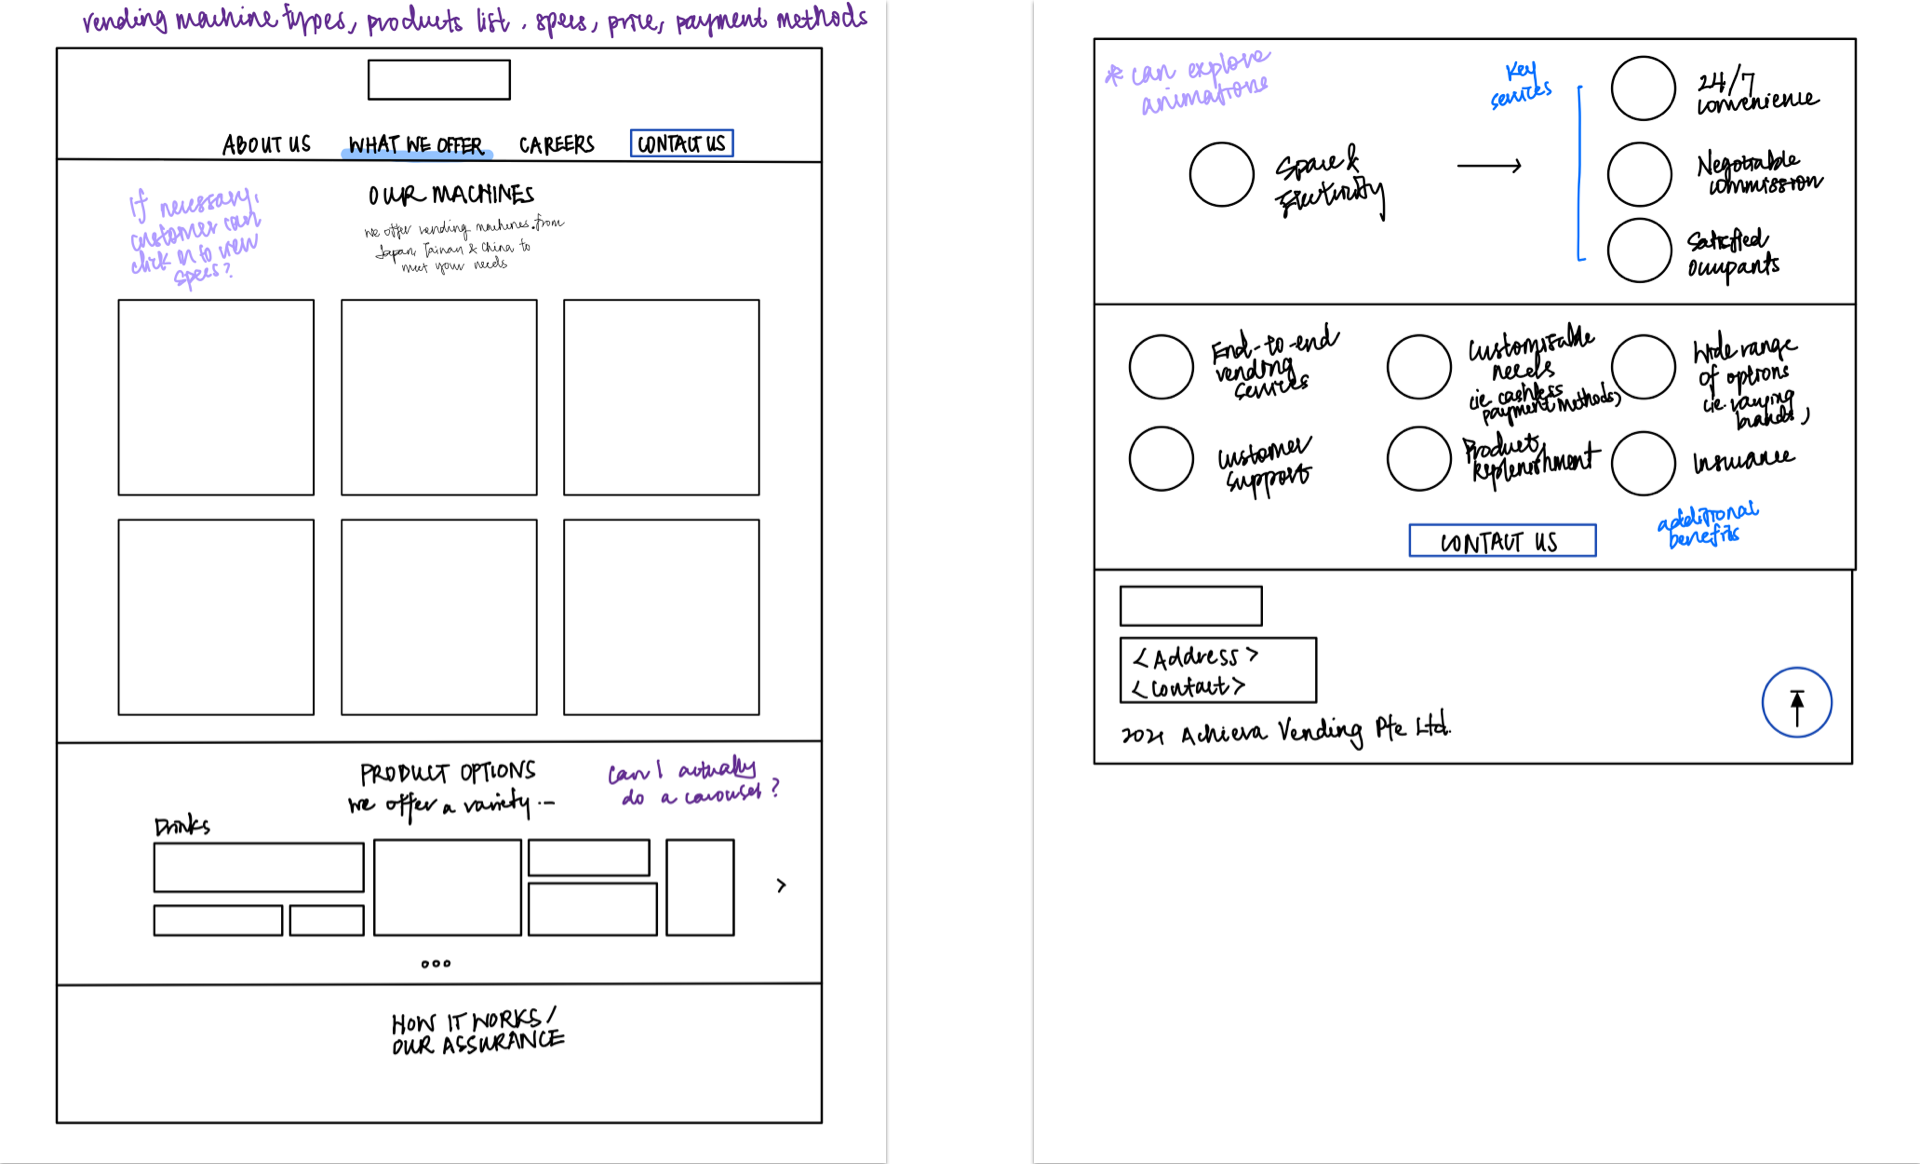 vending machine types, products list. specs, price, payment methods
ABOUT US WHAT WE OFFER CAREERS CONTACT US
If necessary,
customer can
click on to view
specs?
OUR MACHINES
we offer vending machines from
Japan, Taiwan & China to
meet your needs
PRODUCT OPTIONS
we offer a variety...
can I actually
do a carousel?
Drinks
>
HOW IT WORKS/
OUR ASSURANCE
* can explore
animations
Key
services
Space &
Electricity
24/7
convenience
Negotiable
commission
Satisfied
occupants
End-to-end
vending
services
Customisable
needs
(ie. cashless
payment methods)
Wide range
of options
(ie. varying
brands)
Customer
support
Product
replenishment
Insurance
additional
benefits
CONTACT US
<Address>
<Contact>
2021 Achieva Vending Pte Ltd.